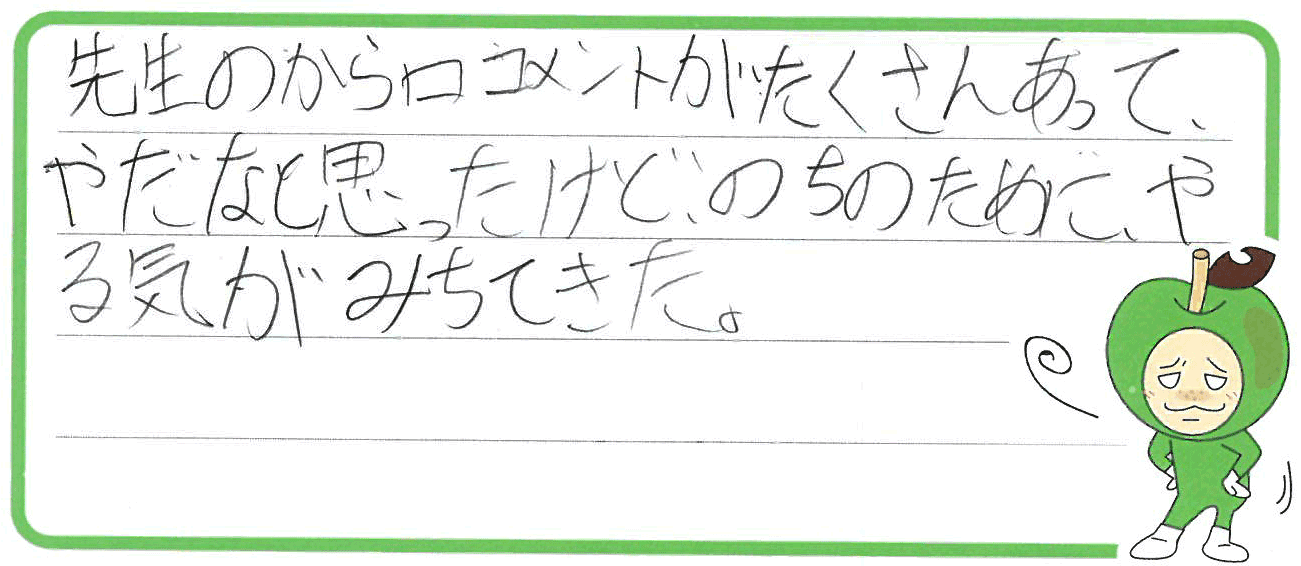 先生のから口コメントがたくさんあって、
やだなと思ったけど、のちのためで、や
る気がみちてきた。